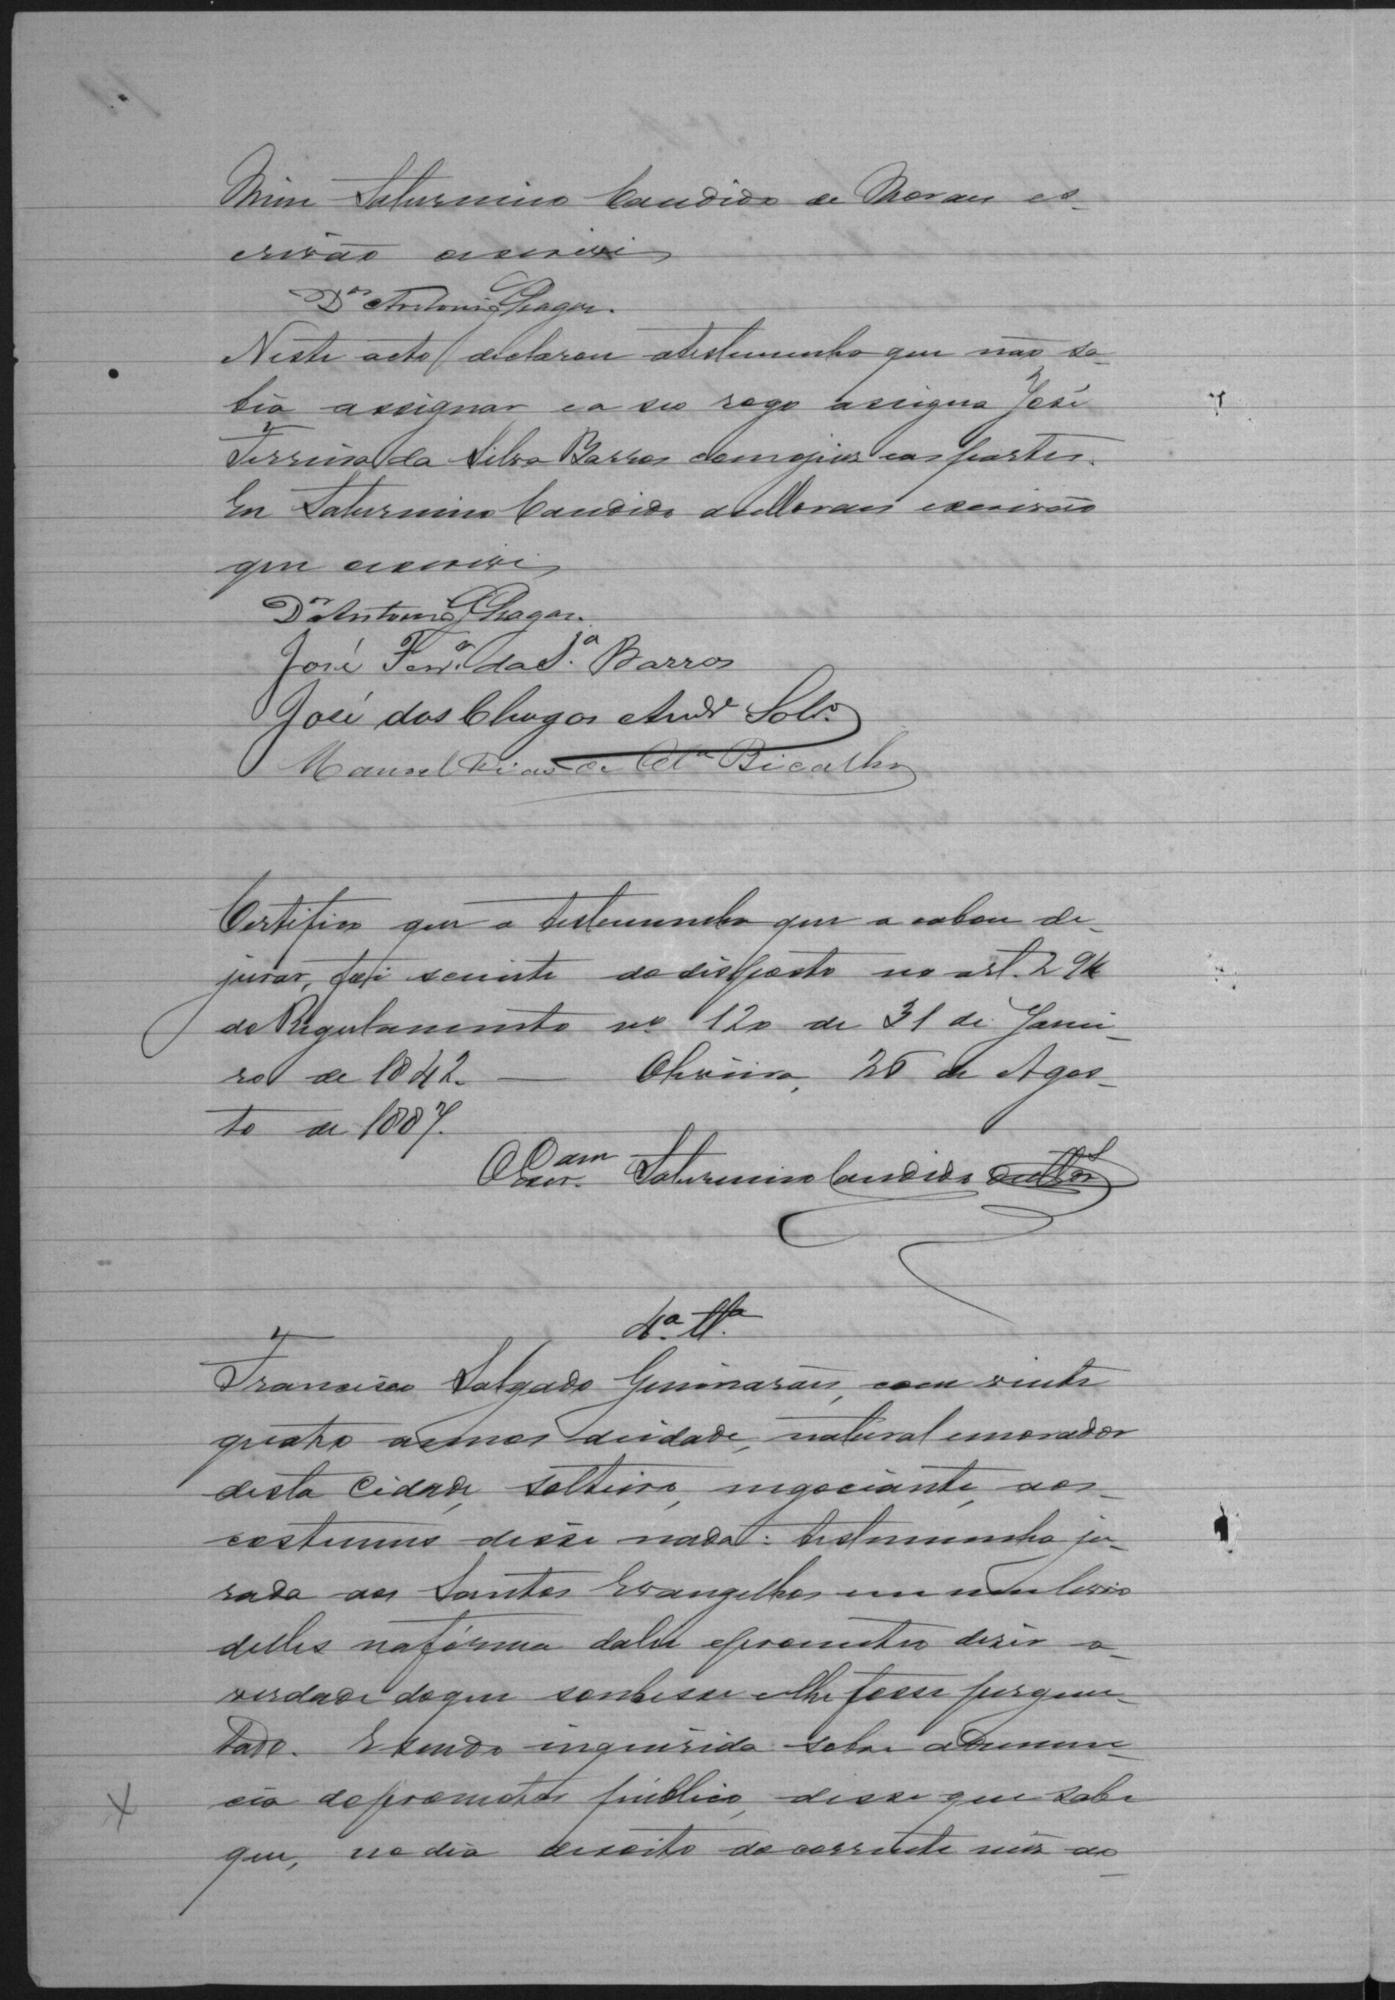 Mim Saturnino Candido de Moraes es-
crivão escrevi
Dr Antonio Chagas.
Neste acto declarou atestemunha que não sa-
bia assignar e a seo rogo assigna José
Ferreira da Silva Barros comojuiz easpartes.
Eu Saturnino Candido deMoraes escrivão
que escrevi
Dr Antonio Chagas.
José Ferr.a da S.a Barros
José das Chagas Andr.e Sobr.o
Manoel Dias de Bicalho
Certifico que a testemunha que acabou de
jurar, foi sciente dodisposto no art. 294
do Regulamento nº 120 de 31 de Janei-
ro de 1842. — Oliveira, 25 de Agos-
to de 1887.
O Escr.am Saturnino Candido deMor
4.a tt.a
Francisco Salgado Guimarães, com vinte
quatro annos deidade, natural emorador
desta Cidade, solteiro, negociante, aos
costumes disse nada: testemunha ju-
rada aos Santos Evangelhos em um livro
delles nafórma dalei eprometteo dizer a
verdade doque soubesse elhe fosse pergun-
tado. E sendo inquirida sobre adenun-
cia dopromotor publico, disse que sabe
que, no dia dezoito do corrente mês ao